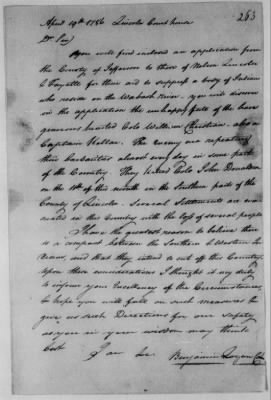 263
April 19th 1786 Lincoln Court house
Dr Sir
You will find inclosed an application from
the County of Jefferson to those of Nelson Lincoln
& Fayette for them and to suppress a body of Indians
who reside on the Wabash River. you will discover
on the application the unhappy fate of the brave
generous hearted Colo William Christian also a
Captain Kellar. The Enemy are repeating
their barbarities almost every day in some part
of the Country. They Killed Colo John Donaldson
on the 11th of this month in the Southern part of the
County of Lincoln. Several Settlements are evac
uated in this Country with the loss of several people
I have the greatest reason to believe there
is a compact between the Southern & Western In
dians, and that they intend to cut off this Country
upon these considerations I thought it my duty
to inform your Excellency of the Circumstances,
& hope you will fall on such measures &
give us such Directions for our safety
as you in your wisdom may think
best
I am &c Benjamin Logan